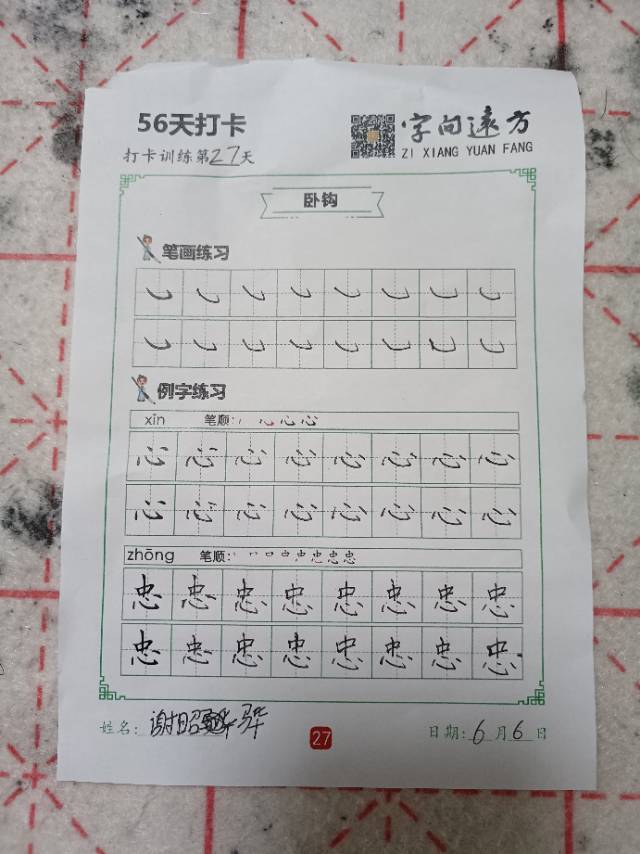 56天打卡
字向远方
打卡训练第27天
ZI XIANG YUAN FANG
卧钩
笔画练习
例字练习
xīn 笔顺:
心 心 心 心 心 心 心 心
心 心 心 心 心 心 心 心
zhōng 笔顺:
忠 忠 忠 忠 忠 忠 忠 忠
忠 忠 忠 忠 忠 忠 忠 忠
姓名: 谢昭骅
27
日期: 6月6日